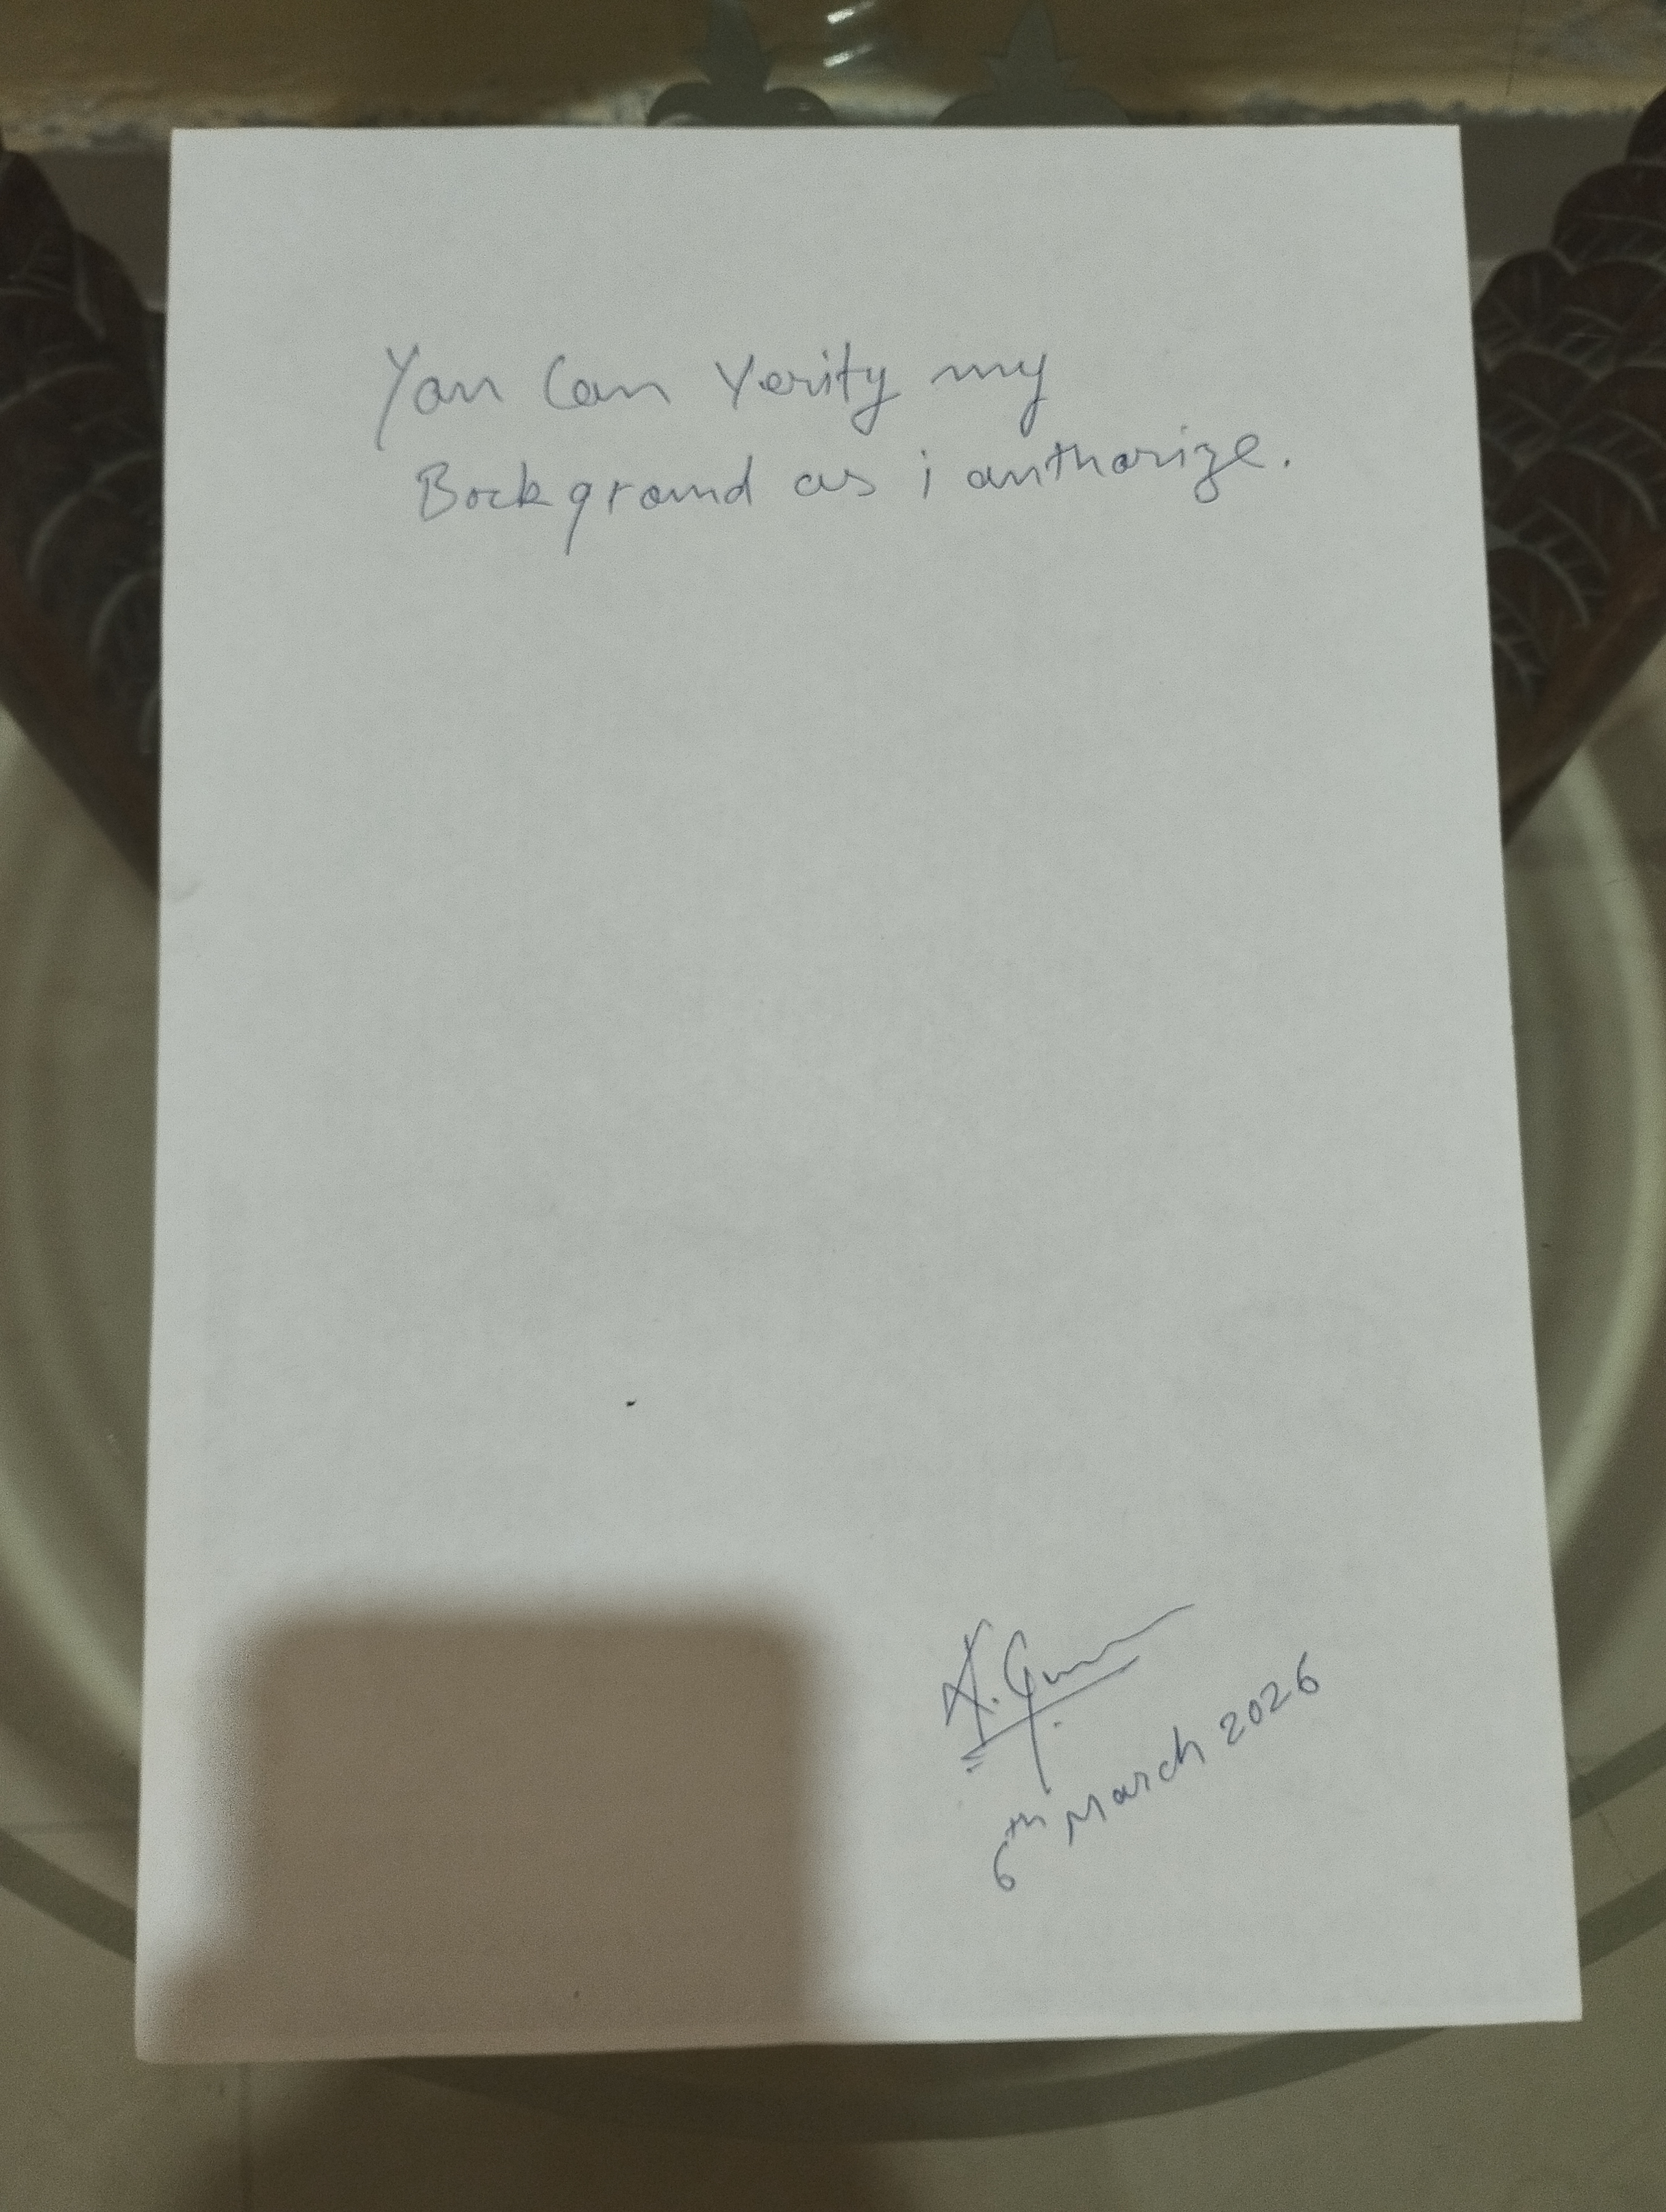 You can verify my
Background as i authorize.
6th March 2026